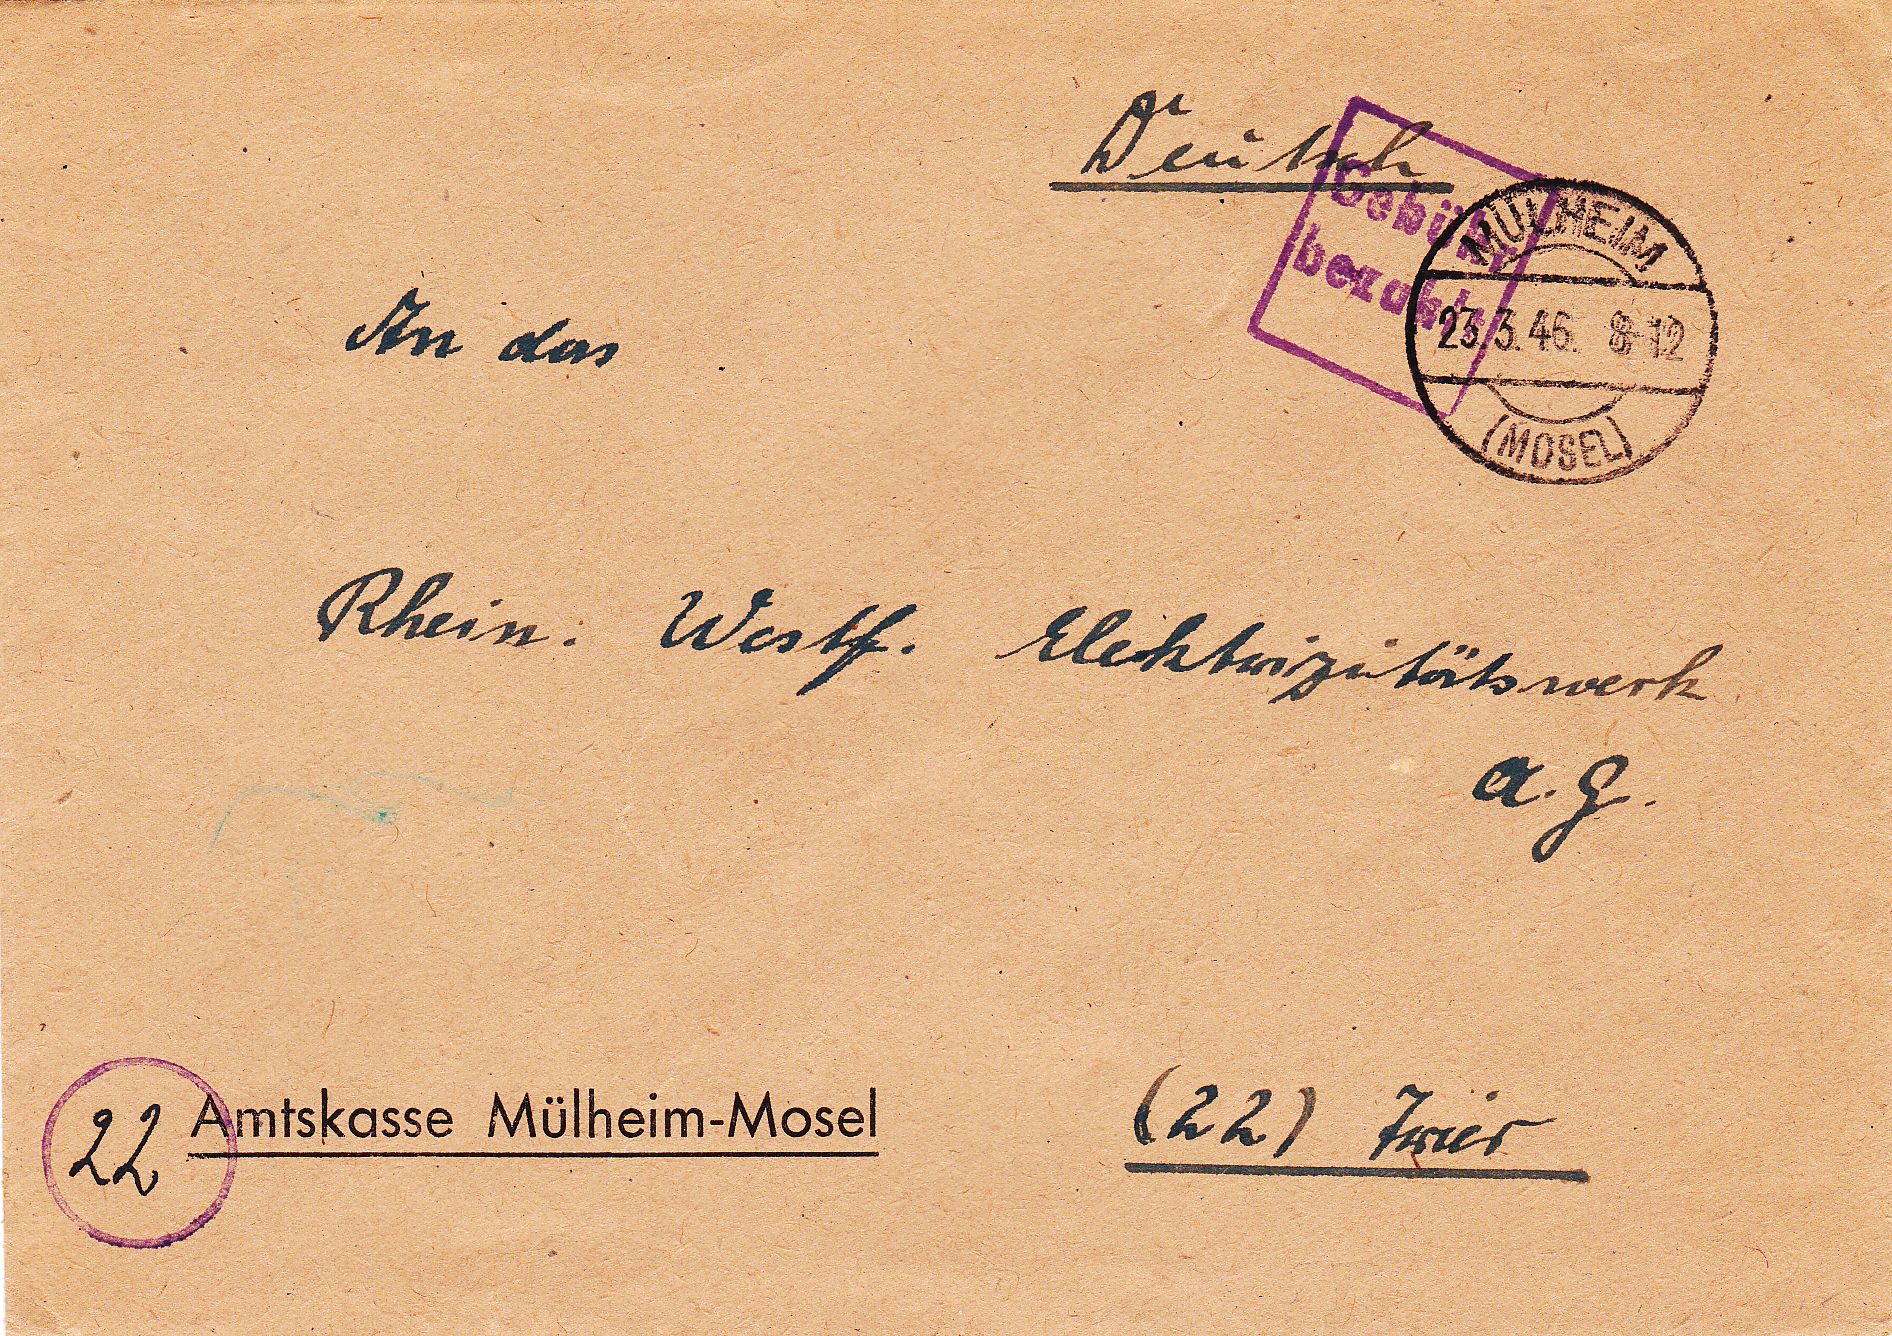 Deutsch
Gebühr
bezahlt
MÜLHEIM
23.3.46. 8-12
(MOSEL)
An das
Rhein. Westf. Elektrizitätswerk
A.G.
22
Amtskasse Mülheim-Mosel
(22) Trier